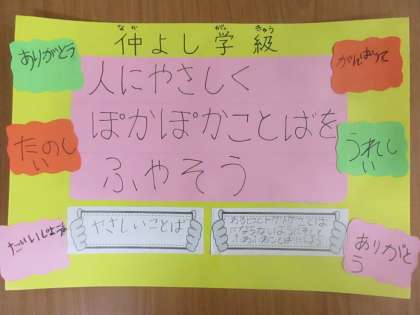 なか が きゅう
仲よし学級
ありがとう
がんばって
人にやさしく
ぽかぽかことばを
ふやそう
たのし
い
うれし
い
だいじょうぶ
やさしいことば
ありがと
う